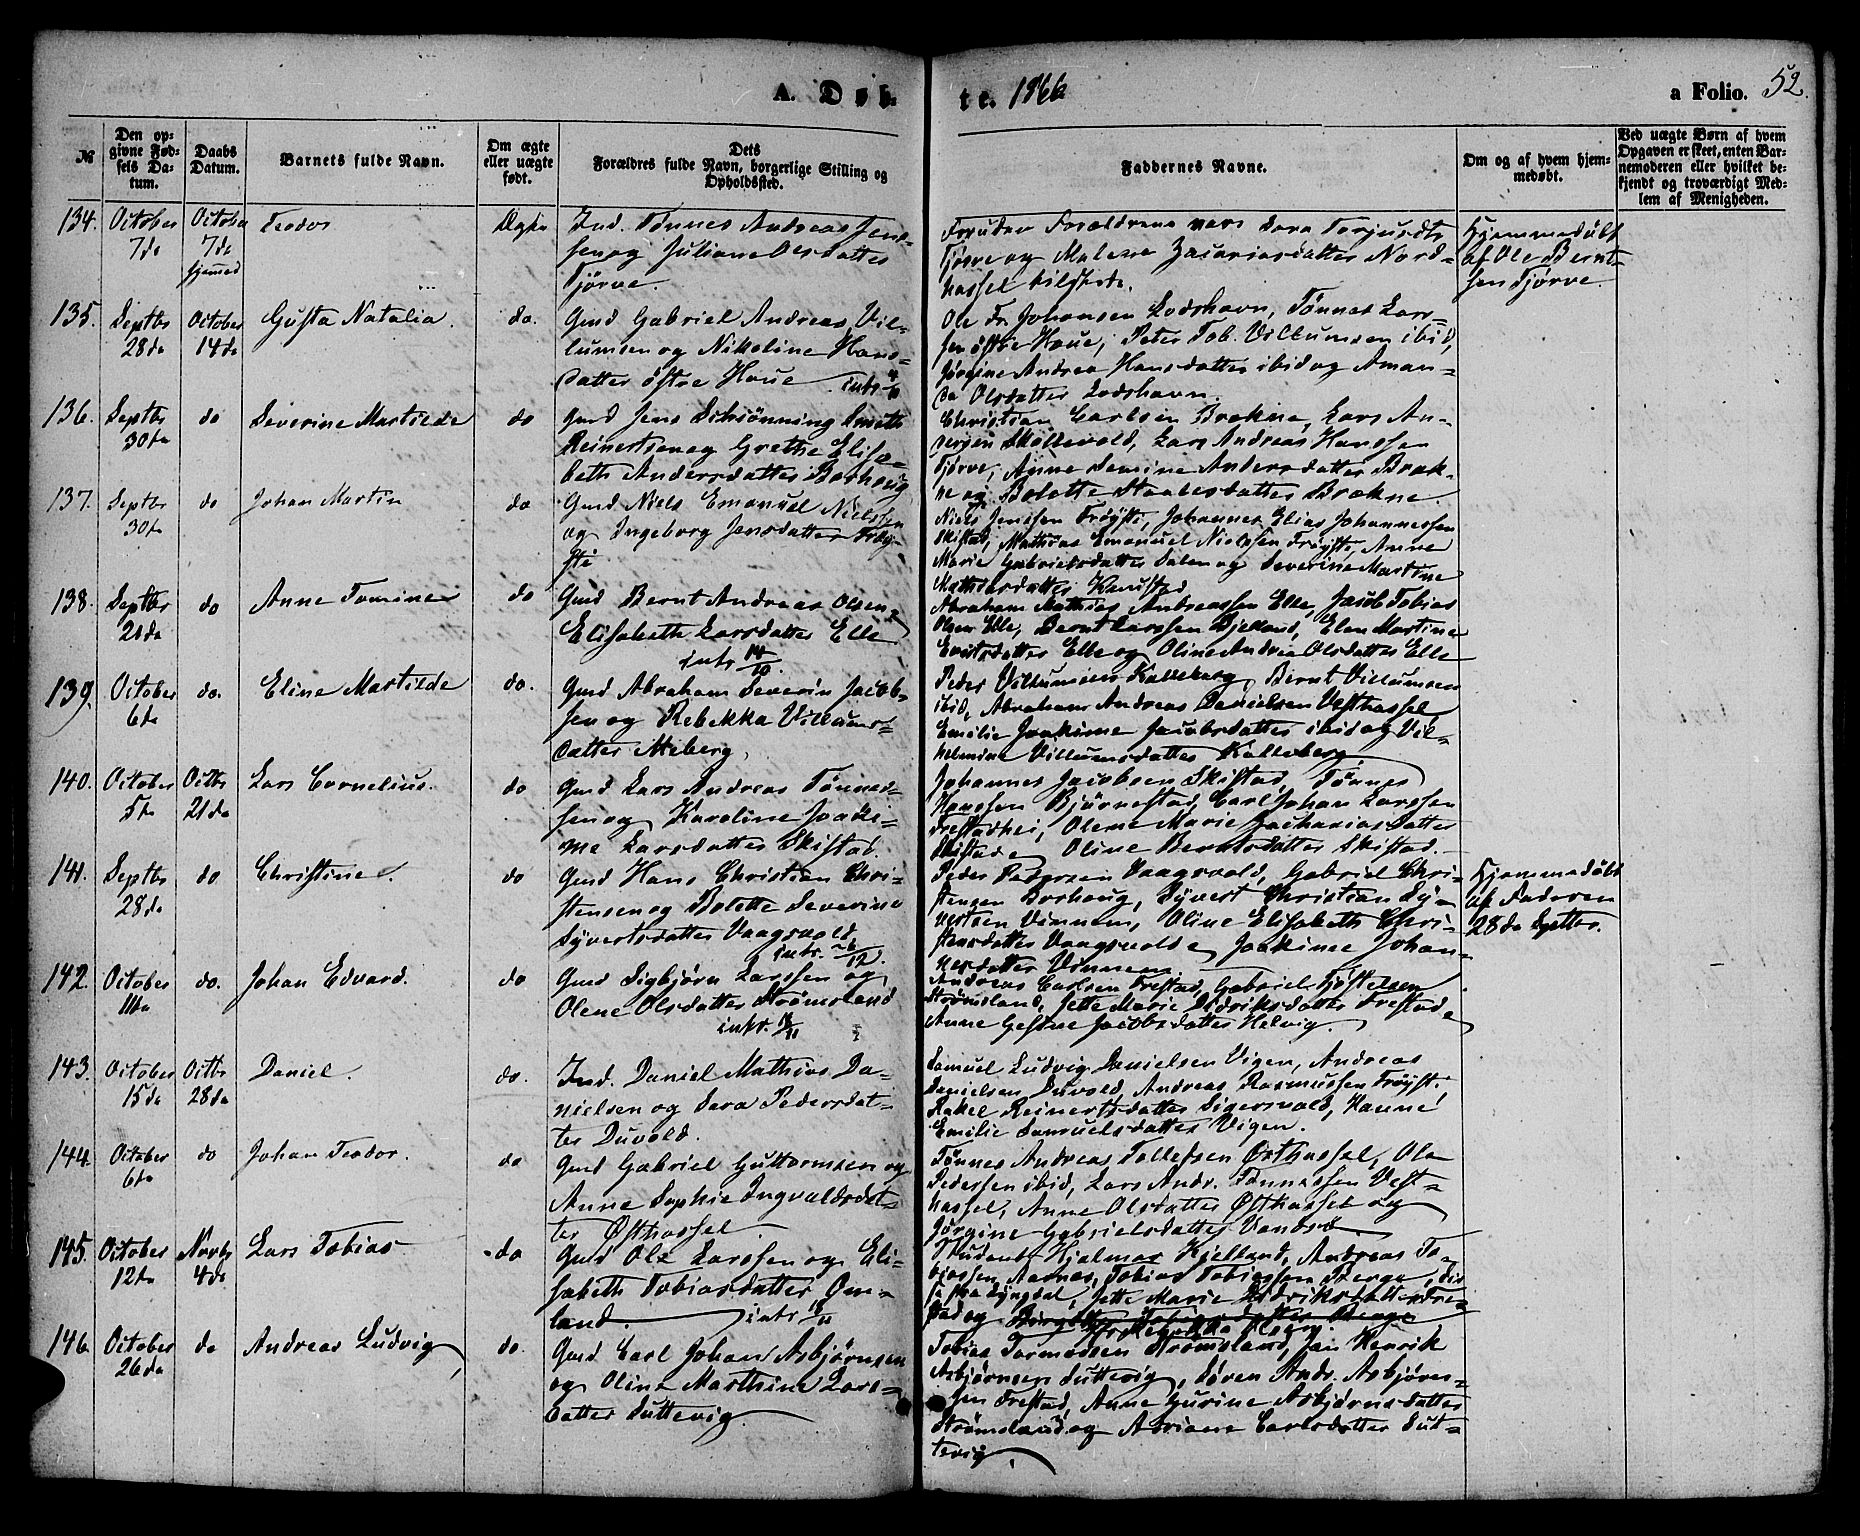 A. Døb-
te. 1866
a Folio. 52.
№
Den op-
givne Fød-
sels Da-
tum.
Daabs
Datum.
Barnets fulde Navn.
Om ægte
eller uægte
født.
Dets
Forældres fulde Navn, borgerlige Stilling og
Opholdssted.
Faddernes Navne.
Om og af hvem hjem-
medøbt.
Ved uægte Børn af hvem
Opgaven er skeet, enten Bar-
nemoderen eller hvilket be-
kjendt og troværdigt Med-
lem af Menigheden.
134.
October
7de
October
7de
hjemmed
Teodor
Ægte
Ind. Tønnes Andreas Jens-
sen og Juliane Olsdatter
Tjørve.
Foruden Forældrene vare Sara Torjusdtr
Tjørve og Malene Zacariasdatter Nord-
hassel tilstede.
Hjemmedøbt
af Ole Bernt-
sen Tjørve.
135.
Septbr
28de
October
14de
Gusta Natalia.
do.
Gmd Gabriel Andreas Vil-
lumsen og Nikoline Hans-
datter østre Haue. intr 4/11
Ole Fr. Johansen Lodshavn, Tønnes Lars-
sen østre Haue, Peter Tob. Villumsen ibid,
Jørgine Andrea Hansdatter ibid og Aman-
da Olsdatter Lodshavn.
136.
Septbr
30te
do
Severine Martilde
do
Gmd Jens Schiønning Smith
Reinertsen og Grethe Elisa-
beth Andersdatter Borhaug
Christian Carlsen Brekne, Lars An-
dersen Skollevold, Lars Andreas Hanssen
Tjørve, Anne Semine Andersdatter Brek-
ne og Bolette Staalesdatter Brekne.
137.
Septbr
30te
do
Johan Martin
do
Gmd Niels Emanuel Nielssen
og Ingeborg Jensdatter Frøy-
sti
Niels Jenssen Frøysti, Johannes Elias Johannessen
Skistad, Mathias Emanuel Nielssen Frøysti, Anne
Marie Gabrielsdatter Dalen og Severine Martine
Mathiasdatter Kanestad
138.
Septbr
21de
do
Anne Tomine
do
Gmd Bernt Andreas Olsen &
Elisabeth Larsdatter Elle
intr 14/10
Abraham Mathias Andreassen Elle, Jacob Tobias
Olsen Elle, Bernt Larssen Bjelland, Elen Martine
Evertsdatter Elle og Oline Andrea Olsdatter Elle
139.
October
6te
do.
Eline Martilde
do.
Gmd Abraham Severin Jacob-
sen og Rebekka Villums-
datter Meberg.
Peder Villumsen Kalleberg, Bernt Villumsen
ibid, Abraham Andreas Danielsen Vesthassel
Emilie Joakime Jacobsdatter ibid og Vil-
helmine Villumsdatter Kalleberg
140.
October
5te
Octbr
21de
Lars Cornelius.
do
Gmd Lars Andreas Tønnes-
sen og Karoline Joaki-
me Larsdatter Skistad.
Johannes Jacobsen Skistad, Tønnes
Hanssen Bjørnestad, Carl Johan Larssen
Frestadhei, Olene Marie Zachariasdatter
Skistad & Oline Berntsdatter Skistad.
141.
Septbr
28de
do
Christine.
do
Gmd Hans Christian Chri-
stensen og Bolette Severine
Syvertsdatter Vaagsvold.
intr. 26/12.
Peder Pedersen Vaagsvold, Gabriel Chri-
stensen Borhaug, Syvert Christian Sy-
vertsen Vinnem, Oline Elisabeth Chri-
stensdatter Vaagsvold & Joakime Johan-
nesdatter Vinnem
Hjemmedøbt
af Faderen
28de Septbr.
142.
October
11te
do.
Johan Edvard.
do
Gmd Sigbjørn Larssen og
Olene Olsdatter Strømsland
intr. 18/11
Andreas Carlsen Frestad, Gabriel Kjøstelsen
Strømsland, Jette Marie Didriksdatter Frestad &
Anne Gesine Jacobsdatter Helvig.
143.
October
15de
Octbr
28de
Daniel.
do.
Ind. Daniel Mathias Da-
nielsen og Sara Pedersdat-
ter Duvold.
Samuel Ludvig Danielsen Vigen, Andreas
Danielsen Duvold, Andreas Rasmussen Frøysti
Rakel Reinertsdatter Sigersvold, Hanne
Emilie Samuelsdatter Vigen.
144.
October
6te
do
Johan Teodor.
do
Gmd Gabriel Guttormsen og
Anne Sophie Ingvaldsdat-
ter Østhassel
Tønnes Andreas Tollefsen Østhassel, Ole
Pedersen ibid, Lars Andr. Tønnessen Vest-
hassel, Anne Olsdatter Østhassel og
Jørgine Gabrielsdatter Vandsø.
145.
October
12te
Novbr
4de
Lars Tobias
do
Gmd Ole Larssen og Eli-
sabeth Tobiasdatter Øm-
land. intr 18/11
Student Hjalmar Kjelland, Andreas To-
biassen Aarnes, Tobias Tobiassen Berge,
Lyngdal, Jette Marie Didriksdatter Fre-
stad og
146.
October
26de
do
Andreas Ludvig
do.
Gmd Carl Johan Asbjørnsen
og Oline Marthine Lars-
datter Luttevig.
Tobias Tormodsen Strømsland, Jan Henrik
Asbjørnsen Luttevig, Søren Andr. Asbjørn-
sen Frestad, Anne Gurine Asbjørnsdatter
Strømsland og Adriane Carlsdatter Lut-
tevig